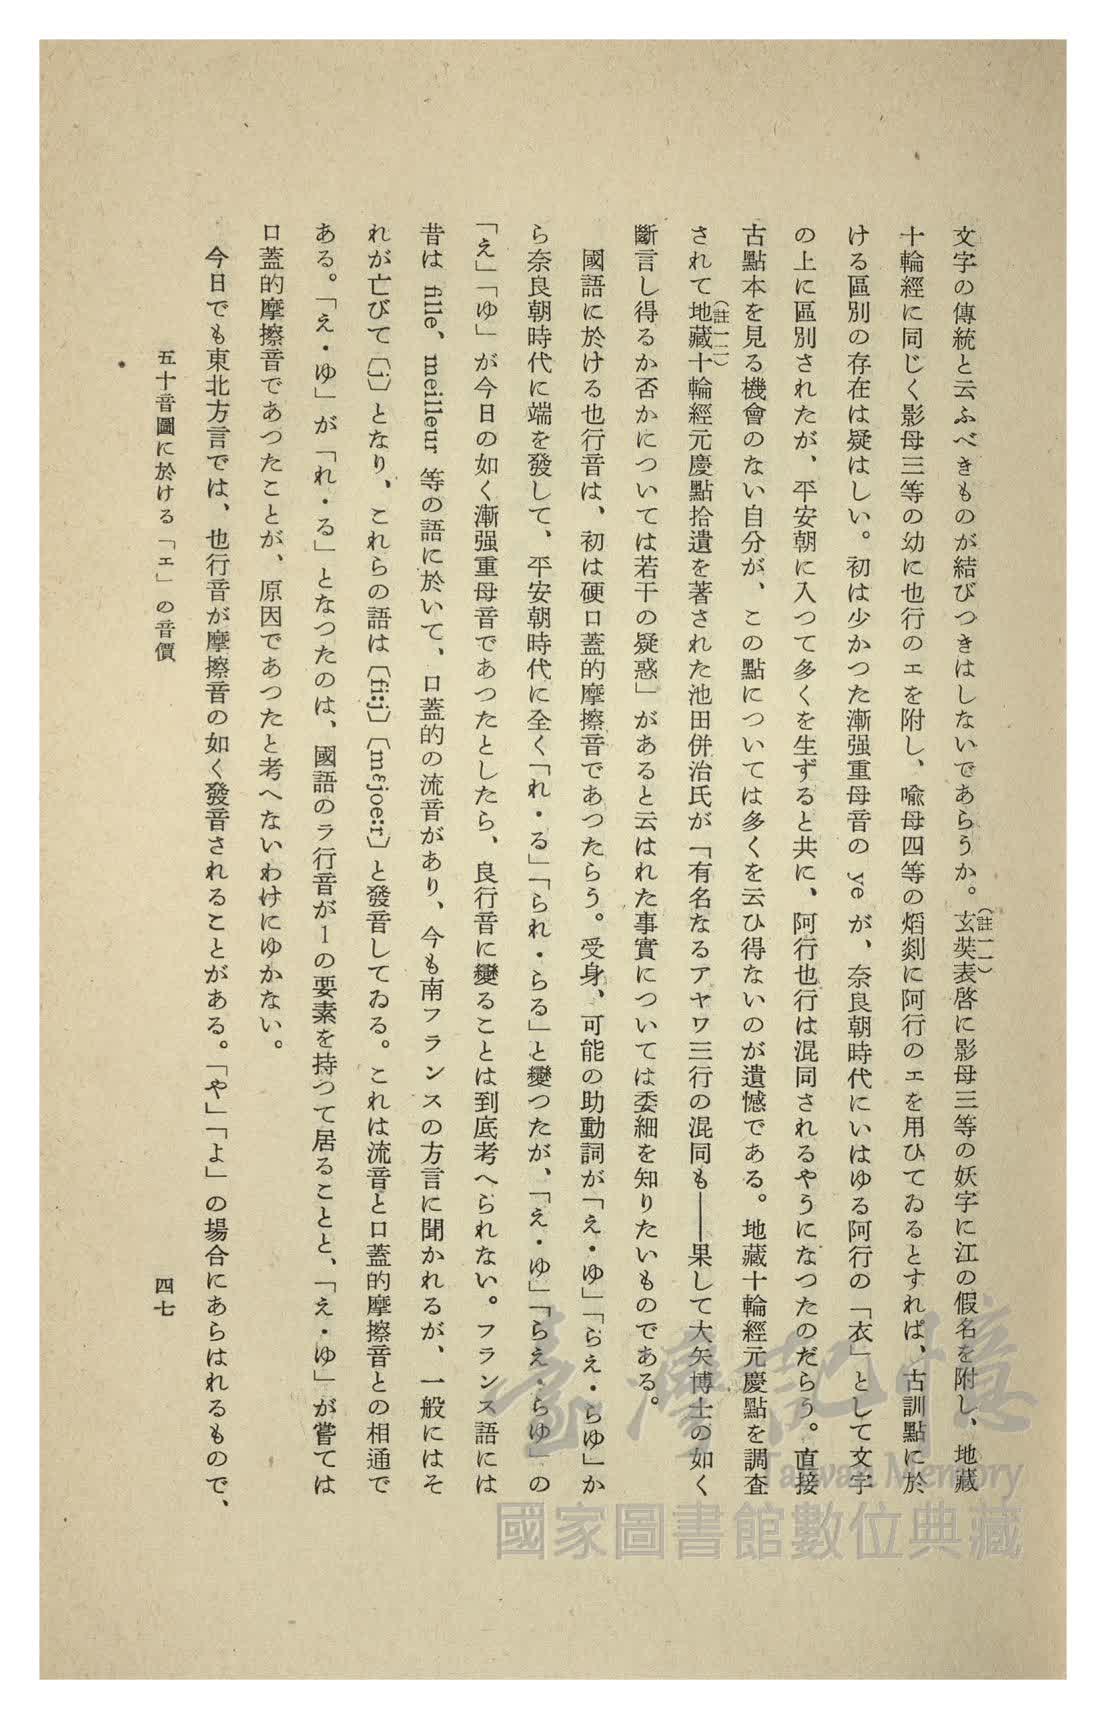 文字の傳統と云ふべきものが結びつきはしないであらうか。玄奘表啓に影母三等の妖字に江の假名を附し、地藏
(註一一)
十輪經に同じく影母三等の幼に也行のエを附し、喩母四等の焰剡に阿行のエを用ひてゐるとすれば、古訓點に於
ける區別の存在は疑はしい。初は少かつた漸强重母音の ye が、奈良朝時代にいはゆる阿行の「衣」として文字
の上に區別されたが、平安朝に入つて多くを生ずると共に、阿行也行は混同されるやうになつたのだらう。直接
古點本を見る機會のない自分が、この點については多くを云ひ得ないのが遺憾である。地藏十輪經元慶點を調査
(註一二)
されて地藏十輪經元慶點拾遺を著された池田併治氏が「有名なるアヤワ三行の混同も——果して大矢博士の如く
斷言し得るか否かについては若干の疑惑」があると云はれた事實については委細を知りたいものである。
國語に於ける也行音は、初は硬口蓋的摩擦音であつたらう。受身、可能の助動詞が「え・ゆ」「らえ・らゆ」か
ら奈良朝時代に端を發して、平安朝時代に全く「れ・る」「られ・らる」と變つたが、「え・ゆ」「らえ・らゆ」の
「え」「ゆ」が今日の如く漸强重母音であつたとしたら、良行音に變ることは到底考へられない。フランス語には
昔は fille, meilleur 等の語に於いて、口蓋的の流音があり、今も南フランスの方言に聞かれるが、一般にはそ
れが亡びて〔j〕となり、これらの語は〔fi:j〕〔mɛjoe:r〕と發音してゐる。これは流音と口蓋的摩擦音との相通で
ある。「え・ゆ」が「れ・る」となつたのは、國語のラ行音がlの要素を持つて居ることと、「え・ゆ」が嘗ては
口蓋的摩擦音であつたことが、原因であつたと考へないわけにゆかない。
今日でも東北方言では、也行音が摩擦音の如く發音されることがある。「や」「よ」の場合にあらはれるもので、
五十音圖に於ける「エ」の音價
四七
臺灣記憶
Taiwan Memory
國家圖書館數位典藏